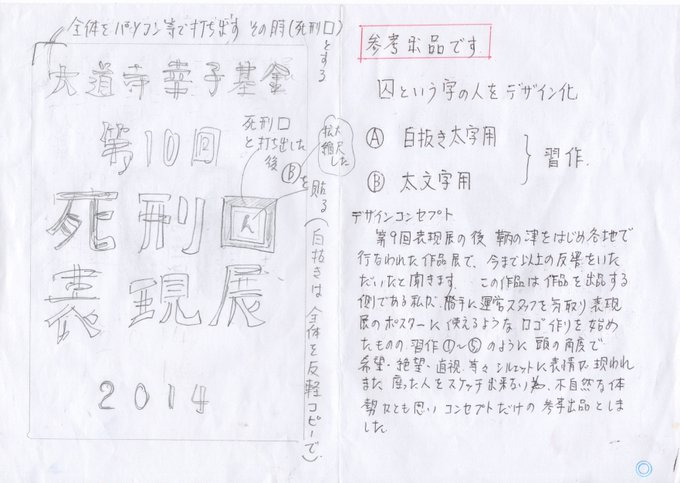 全体をパソコン等で打ち出す その時(死刑口とする
大道寺幸子基金
第10回
死刑口と打出した後
Ⓑを
拡大縮尺した
貼る(白抜きは全体を反軽コピーで)
死刑囚
表現展
2014
参考出品です.
囚という字の人をデザイン化
Ⓐ 白抜き太字用
Ⓑ 太文字用
習作.
デザインコンセプト
第9回表現展の後 鞆の津をはじめ各地で
行なわれた作品展で、今まで以上の反響をいた
だいたと聞きます. この作品は作品を出品する
側である私が、勝手に運営スタッフを気取り表現
展のポスターに使えるような ロゴ作りを始め
たものの 習作①〜⑤のように 頭の角度で
希望・絶望・直視 等々 シルエットに表情が現われ
また 座った人をスケッチ出来ない為、不自然な体
勢かとも思い コンセプトだけの 参考出品としま
した